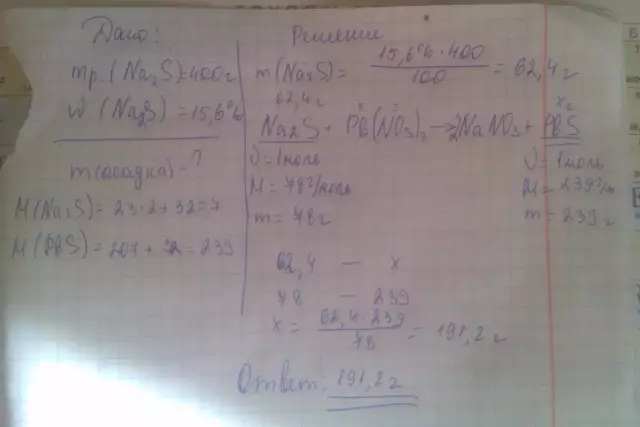 Дано:
mр. (Na₂S)=400г
w (Na₂S) = 15,6%
m(осадка) - ?
M(Na₂S) = 23·2+32=7
M(PbS) = 207 + 32 = 239
Решение
m(Na₂S) = 15,6% · 400 / 100 = 62,4 г
62,4 г x г
Na₂S + Pb(NO₃)₂ → 2NaNO₃ + PbS
ν = 1 моль ν = 1 моль
M = 78 г/моль M = 239 г/м
m = 78 г m = 239 г
62,4 — x
78 — 239
x = 62,4 · 239 / 78 = 191,2 г
Ответ: 191,2 г